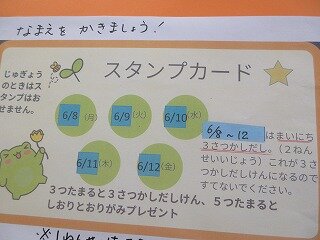 なまえを かきましょう!
じゅぎょう
のときはス
タンプはお
せません。
スタンプカード
6/8(月)
6/9(火)
6/10(水)
6/11(木)
6/12(金)
6/8~12
はまいにち
3さつかしだし。(2ねん
せいいじょう)これが3さ
つかしだしけんになるので
すてないでください。
3つたまると3さつかしだしけん、5つたまると
しおりとおりがみプレゼント